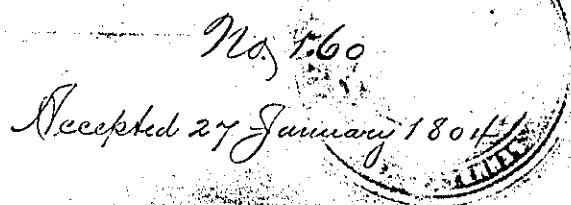 No, 160
Accepted 27 January 1804